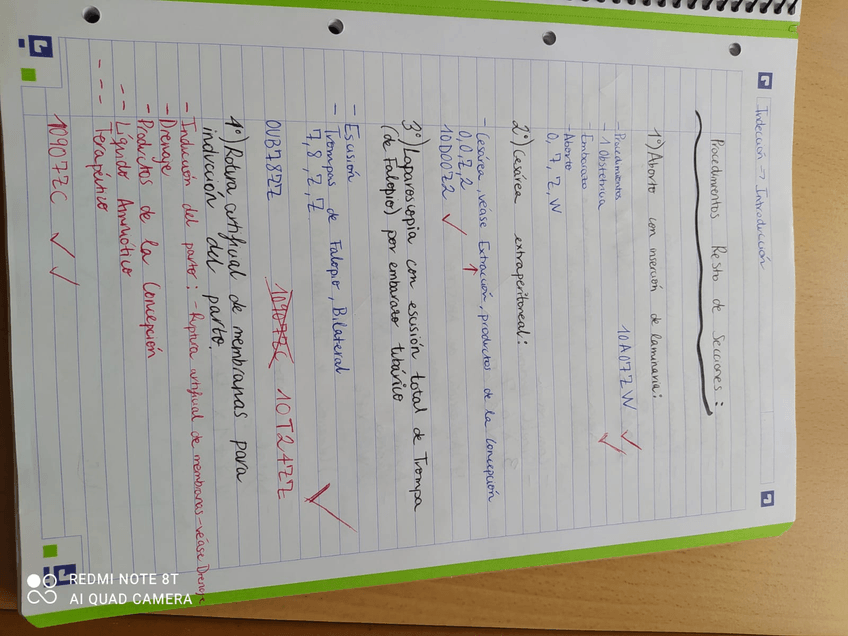 Indección → Introducción
Procedimientos Resto de Secciones:
1º) Aborto con inserción de laminaria:
- Procedimientos
- 1 Obstetricia
- Embarazo
- Aborto
0, 7, Z, W
10A07ZW
2º) Cesárea extraperitoneal:
- Cesárea, véase Extracción, productos de la Concepción
0,0,Z,2
10D00Z2
3º) Laparoscopia con escisión total de Trompa
(de Falopio) por embarazo tubárico
- Escisión
- Trompas de Falopio, Bilateral
7,8,Z,Z
0UB78ZZ 10907ZC 10T24ZZ
4º) Rotura artificial de membranas para
inducción del parto.
- Inducción del parto: - Ruptura artificial de membranas - véase Drenaje
- Drenaje
- Productos de la Concepción
- - Líquido Amniótico
- - - Terapéutico
10907ZC
REDMI NOTE 8T
AI QUAD CAMERA